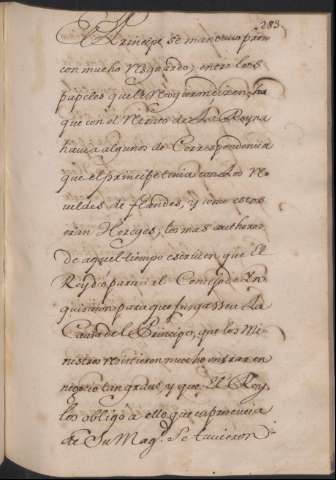 283
El Principe se mantuvo preso
con mucho resguardo; entre los
papeles que le
que con el retrato de la Reyna
havia algunos de Correspondencia
que el principe tenia con los Re
veldes de flandes, y como estos
eran Hereges, los mas authores
de aquel tiempo escriven que El
Rey dio parte al Consejo de Yn
quisicion para que juzgasse la
Causa del Principe, que los Mi
nistros sintieron mucho entrar en
negocio tan grave, y que El Rey
los obligo a ello, que en presencia
de Su Magd. se tuvieron